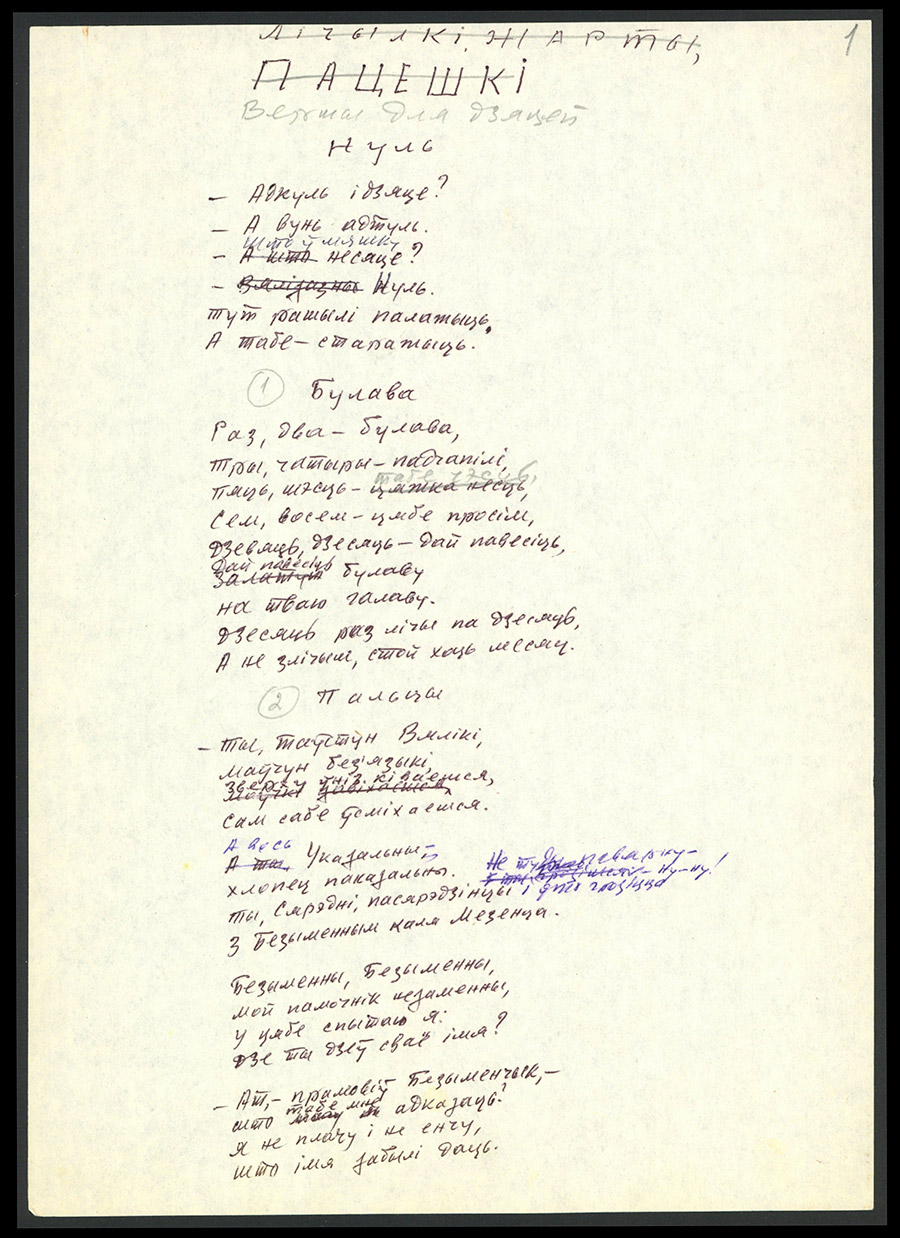 1
ЛІЧЫЛКІ, ЖАРТЫ,
ПАЦЕШКІ
Вершы для дзяцей
Нуль
– Адкуль ідзяце?
– А вунь адтуль.
што ў мяшку
– А што несяце?
– Вялізазны Нуль.
Тут рашылі палажыць,
А табе – старажыць.
1 Булава
Раз, два – булава,
Тры, чатыры – падчапілі,
табе
Пяць, шэсць – цяжка несць,
Сем, восем – цябе просім,
Дзевяць, дзесяць – дай павесіць,
Дай павесіць
Залатую булаву
на тваю галаву.
Дзесяць раз лічы па дзесяць,
А не злічыш, стой хоць месяц.
2 Пальцы
– Ты, таўстун Вялікі,
маўчун без'языкі,
зверху ўніз ківаешся,
сам сабе ўсміхаешся.
А вось
А ты Указальны –
хлопец паказальны.
Не туды
ну-ну!
Ты, Сярэдні, пасярэдзінцы
З Безыменным каля Мезенца.
Безыменны, Безыменны,
мой памочнік незаменны,
у цябе спытаю я:
дзе ты дзеў сваё імя?
– Ат, – прамовіў Безыменчык, –
табе мне
што адказаць?
Я не плачу і не енчу,
што імя забылі даць.